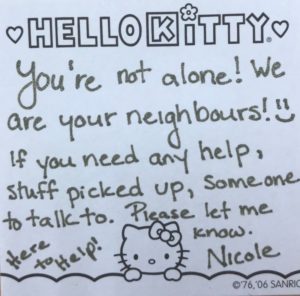 HELLO KITTY®
You're not alone! We
are your neighbours!!
If you need any help,
stuff picked up, someone
to talk to. Please let me
know.
Here
to Help!
Nicole
©'76,'06 SANRIO